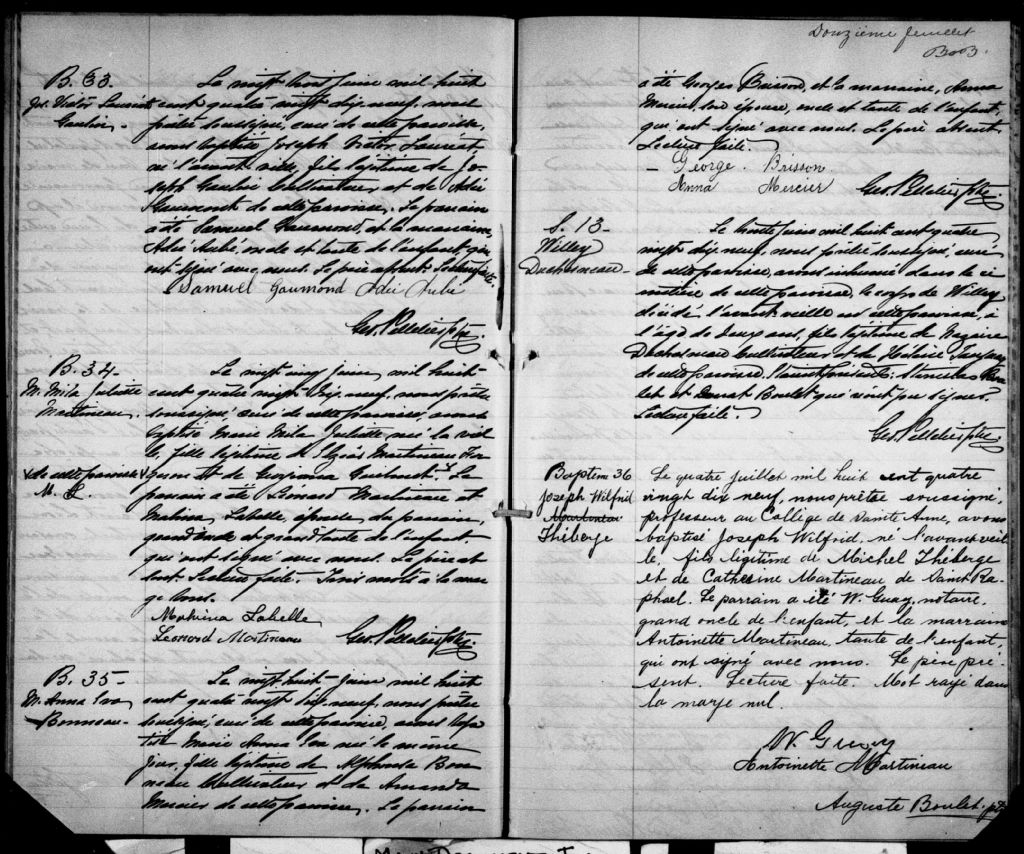 B. 33.
Jos. Victor Lauréat
Gaulin
Le vingt trois juin mil huit
cent quatre vingt dix neuf, nous
prêtre soussigné, curé de cette paroisse,
avons baptisé Joseph Victor Lauréat,
né l'avant veille, fils légitime de Jo-
seph Gaulin Cultivateur, et de Adée
Gaumond de cette paroisse. Le parrain
a été Samuel Gaumond, et la marraine
Adée Aubé oncle et tante de l'enfant qui
ont signé avec nous. Le père absent. Lecture faite.
Samuel Gaumond Adée Aubé
Geo. Pelletier Ptre
B. 34-
M. Mila Juliette
Martineau
Le vingt cinq juin mil huit
cent quatre vingt dix neuf, nous prêtre
soussigné curé de cette paroisse, avons
baptisé Marie Mila Juliette née la veil
le, fille légitime de Elzéar Martineau
et de Georgiana Guilmet. Le
X de cette paroisse X
M. L.
parrain a été Léonard Martineau et
Malvina Labelle, épouse du parrain,
grand oncle et grand tante de l'enfant
qui ont signé avec nous. Le père ab
sent. Lecture faite. Trois mots à la mar
ge bons.
Malvina Labelle
Léonard Martineau
Geo. Pelletier Ptre
B. 35-
M. Anna Eva
Bonneau
Le vingt huit juin mil huit
cent quatre vingt dix neuf, nous prêtre
soussigné, curé de cette paroisse, avons bap
tisé Marie Anna Eva née le même
jour, fille légitime de Alphonse Bon
neau Cultivateur et de Amanda
Mercier de cette paroisse. Le parrain
Douzième feuillet
BooB.
a été Georges Brisson, et la marraine, Anna
Mercier son épouse, oncle et tante de l'enfant,
qui ont signé avec nous. Le père absent.
Lecture faite.
George. Brisson
Anna Mercier
Geo. Pelletier Ptre.
S. 13-
Willey
Duchesneau
Le trente juin mil huit cent quatre
vingt dix neuf, nous prêtre soussigné, curé
de cette paroisse, avons inhumé dans le ci
metière de cette paroisse, le corps de Willey
décédé l'avant veille en cette paroisse, à
l'âge de deux ans, fils légitime de Nazaire
Duchesneau Cultivateur et de
de cette paroisse. Etaient présents: Stanislas
let et Boulet qui n'ont pu signer.
Lecture faite.
Geo. Pelletier Ptre.
Baptême 36
Joseph Wilfrid
Martineau
Théberge
Le quatre juillet mil huit cent quatre
vingt dix neuf, nous prêtre soussigné,
professeur au Collège de Sainte Anne, avons
baptisé Joseph Wilfrid. né l'avant veil
le, fils légitime de Michel Théberge
et de Catherine Martineau de Saint Ra-
phael. Le parrain a été W. Guay, notaire,
grand oncle de l'enfant, et la marraine
Antoinette Martineau, tante de l'enfant,
qui ont signé avec nous. Le père pré-
sent. Lecture faite. Mot rayé dans
la marge nul.
W. Guay
Antoinette Martineau
Auguste Boulet. ptre